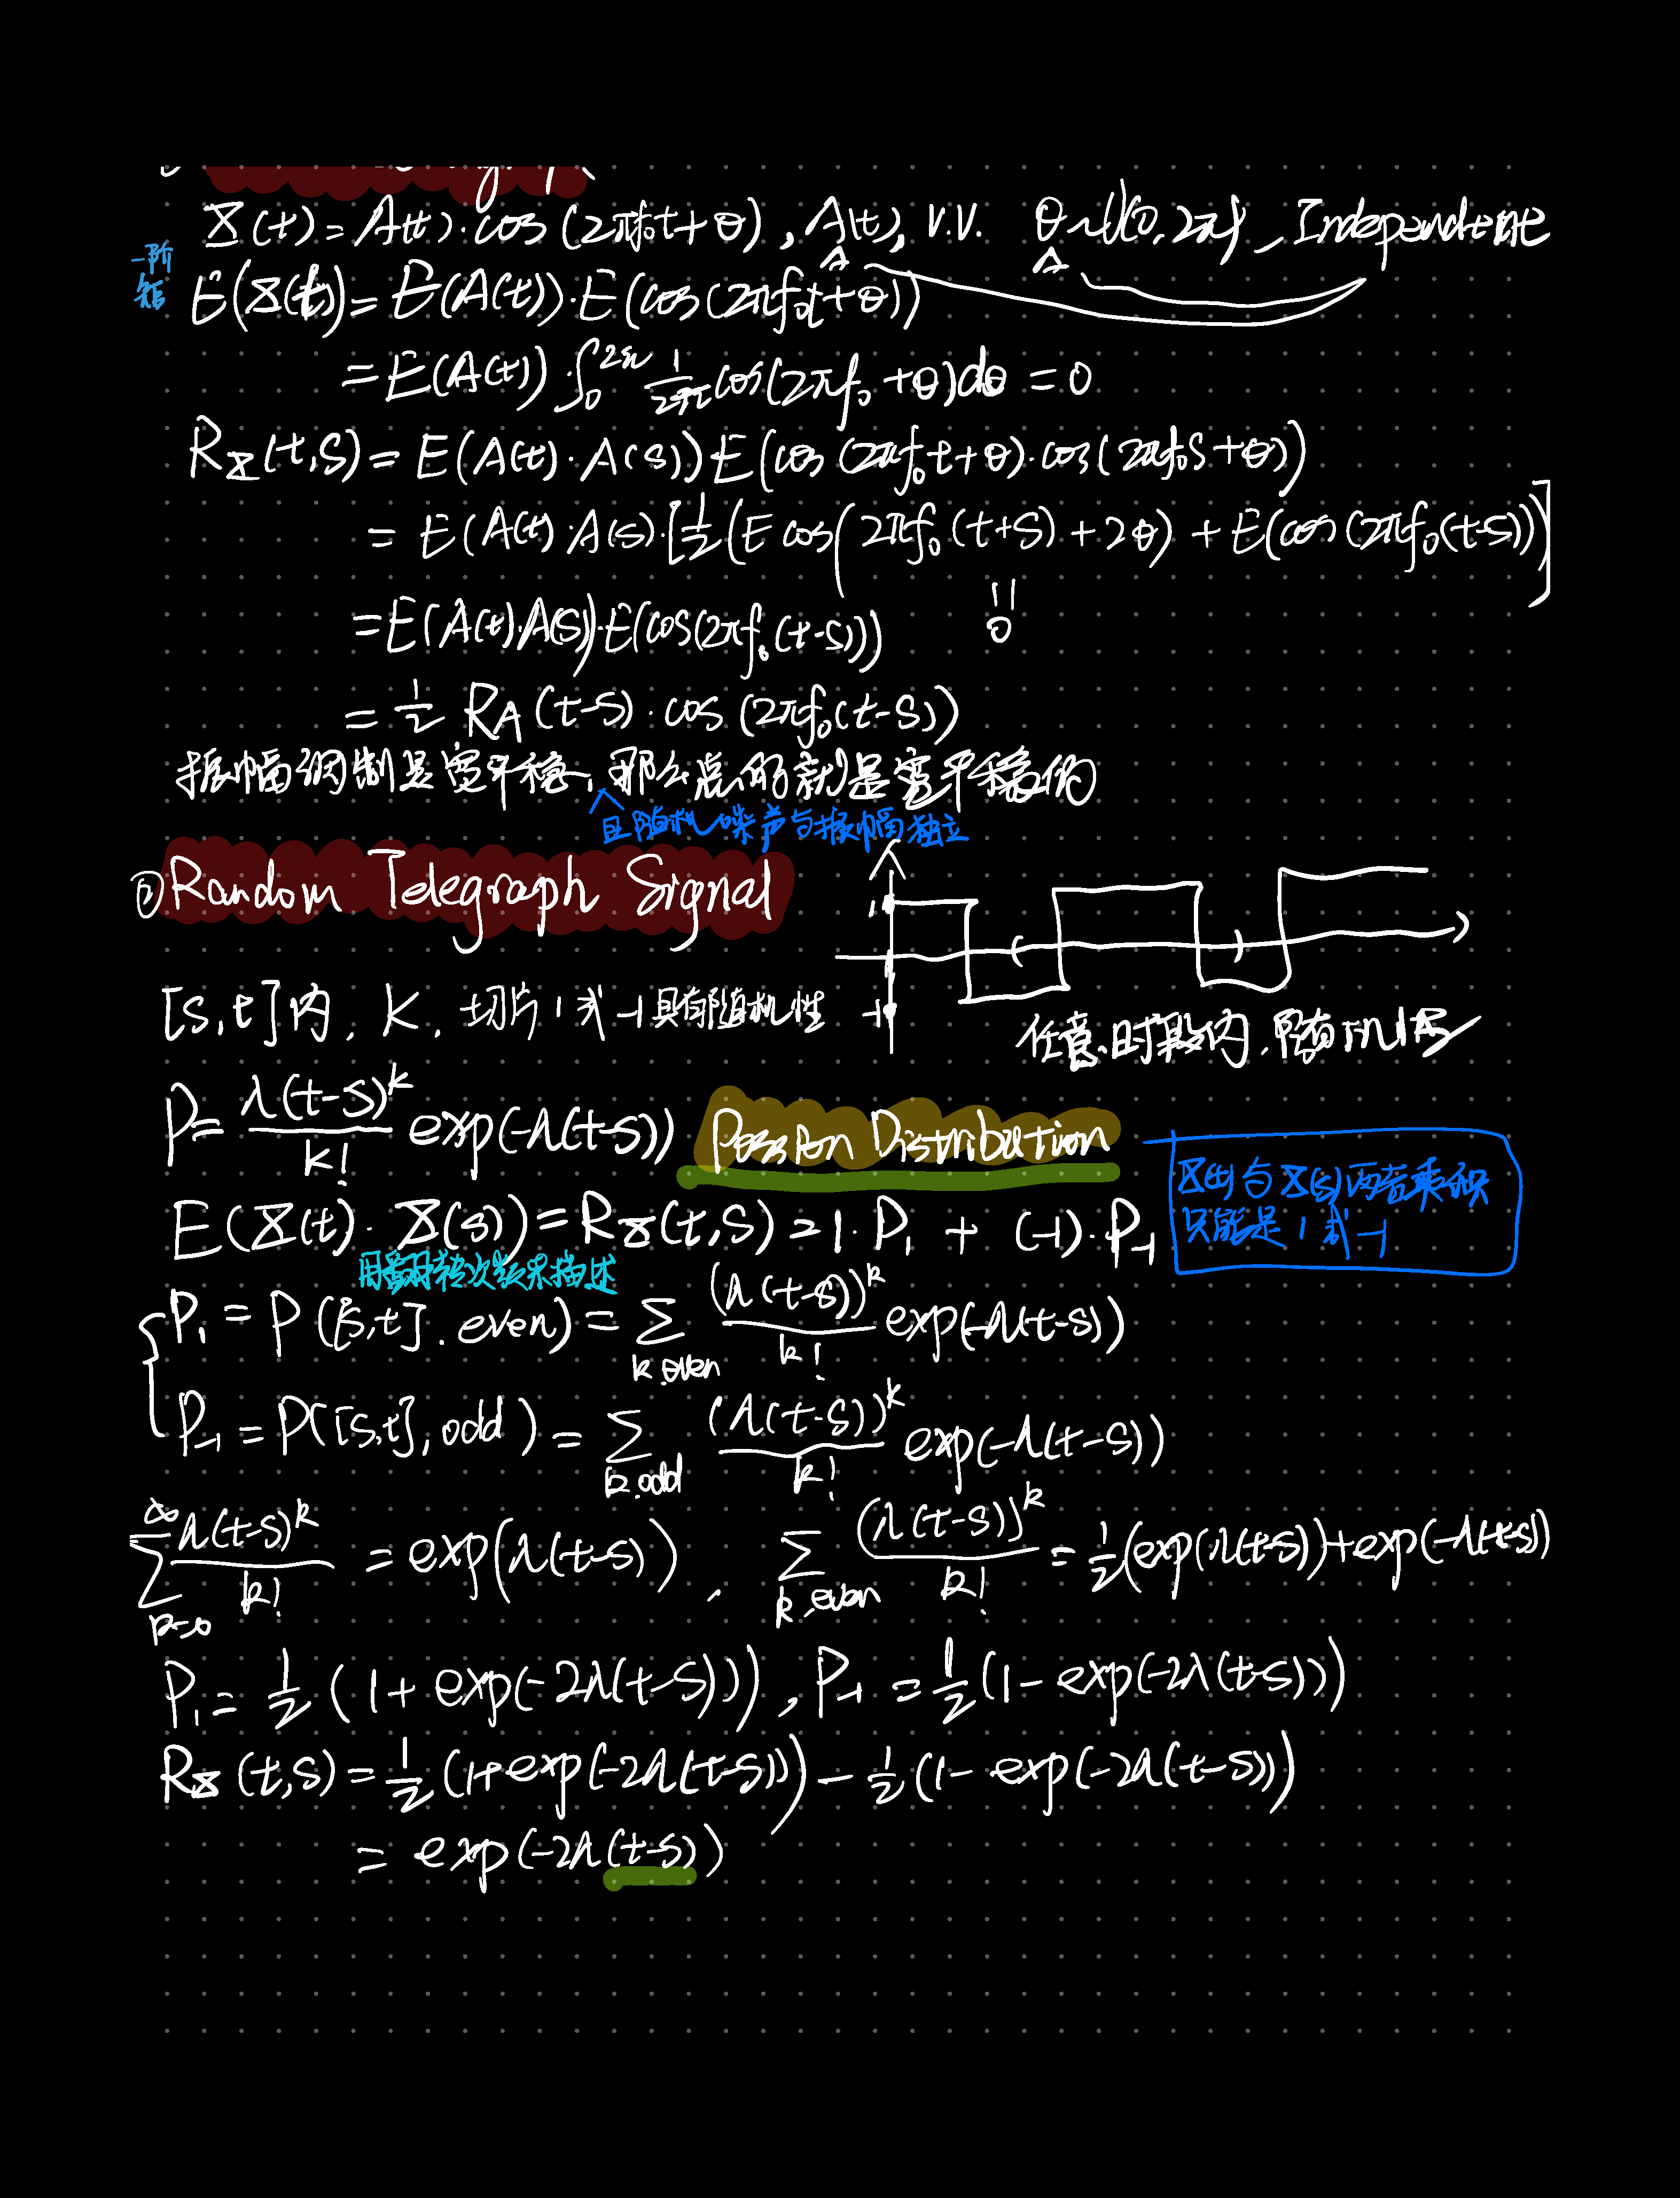 X(t) = A(t)·cos(2πf₀t+θ), A(t), r.v. θ~U(0,2π), Independent
一阶矩
E(X(t)) = E(A(t))·E(cos(2πf₀t+θ))
= E(A(t))·∫₀^{2π} 1/2π cos(2πf₀+θ)dθ = 0
R_X(t,s) = E(A(t)·A(s))E(cos(2πf₀t+θ)·cos(2πf₀s+θ))
= E(A(t)·A(s)·[1/2(E cos(2πf₀(t+s)+2θ) + E(cos(2πf₀(t-s))]
= E(A(t)·A(s))·E(cos(2πf₀(t-s)))
0
= 1/2 R_A(t-s)·cos(2πf₀(t-s))
振幅调制是宽平稳,那么总的就是宽平稳的
且随机噪声与振幅独立
② Random Telegraph Signal
1
-1
[s,t]内, K, 切片1或-1具有随机性
任意时段内,
P = λ(t-s)^k/k! exp(-λ(t-s)) Possion Distribution
X(t)与X(s)两者乘积
只能是1或-1
E(X(t)·X(s)) = R_X(t,s) = 1·P₁ + (-1)·P₋₁
用翻转次数来描述
P₁ = P([s,t].even) = Σ_{k.even} (λ(t-s))^k/k! exp(-λ(t-s))
P₋₁ = P([s,t], odd) = Σ_{k.odd} (λ(t-s))^k/k! exp(-λ(t-s))
Σ_{k=0}^{∞} λ(t-s)^k/k! = exp(λ(t-s)), Σ_{k.even} (λ(t-s))^k/k! = 1/2(exp(λ(t-s))+exp(-λ(t-s))
P₁ = 1/2(1+exp(-2λ(t-s))), P₋₁ = 1/2(1-exp(-2λ(t-s)))
R_X(t,s) = 1/2(1+exp(-2λ(t-s))) - 1/2(1-exp(-2λ(t-s)))
= exp(-2λ(t-s))